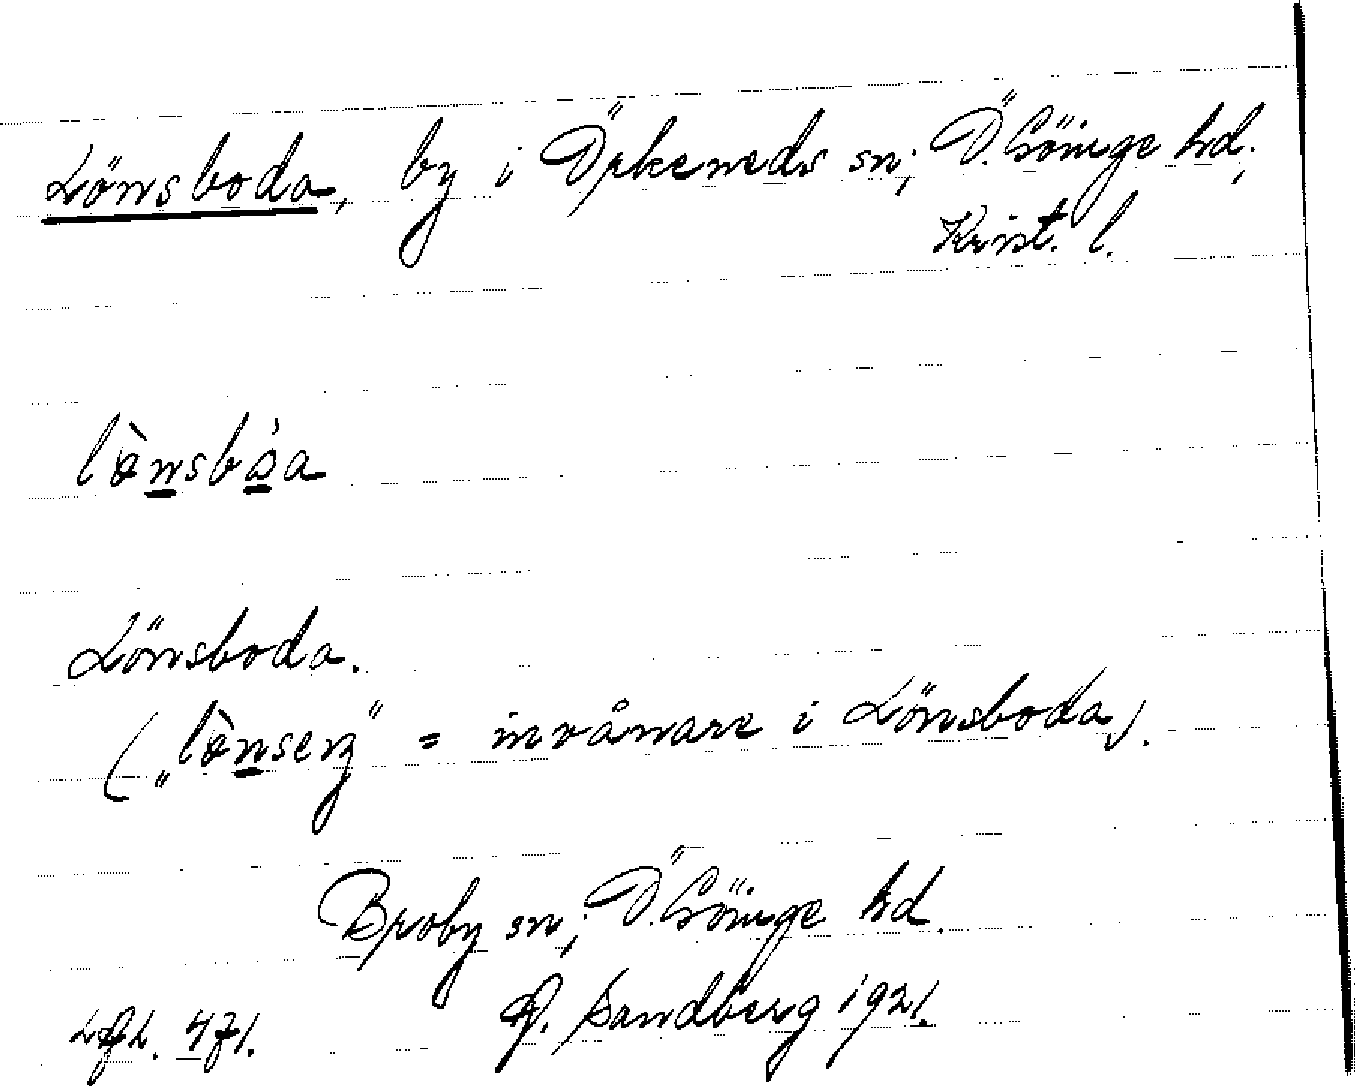 Lönsboda, by i Örkeneds sn; Ö. Göinge hd.;
Krist. l.
Lönsboda.
= invånare i Lönsboda).
Broby sn; Ö. Göinge hd.
Sandberg 1921.
471.